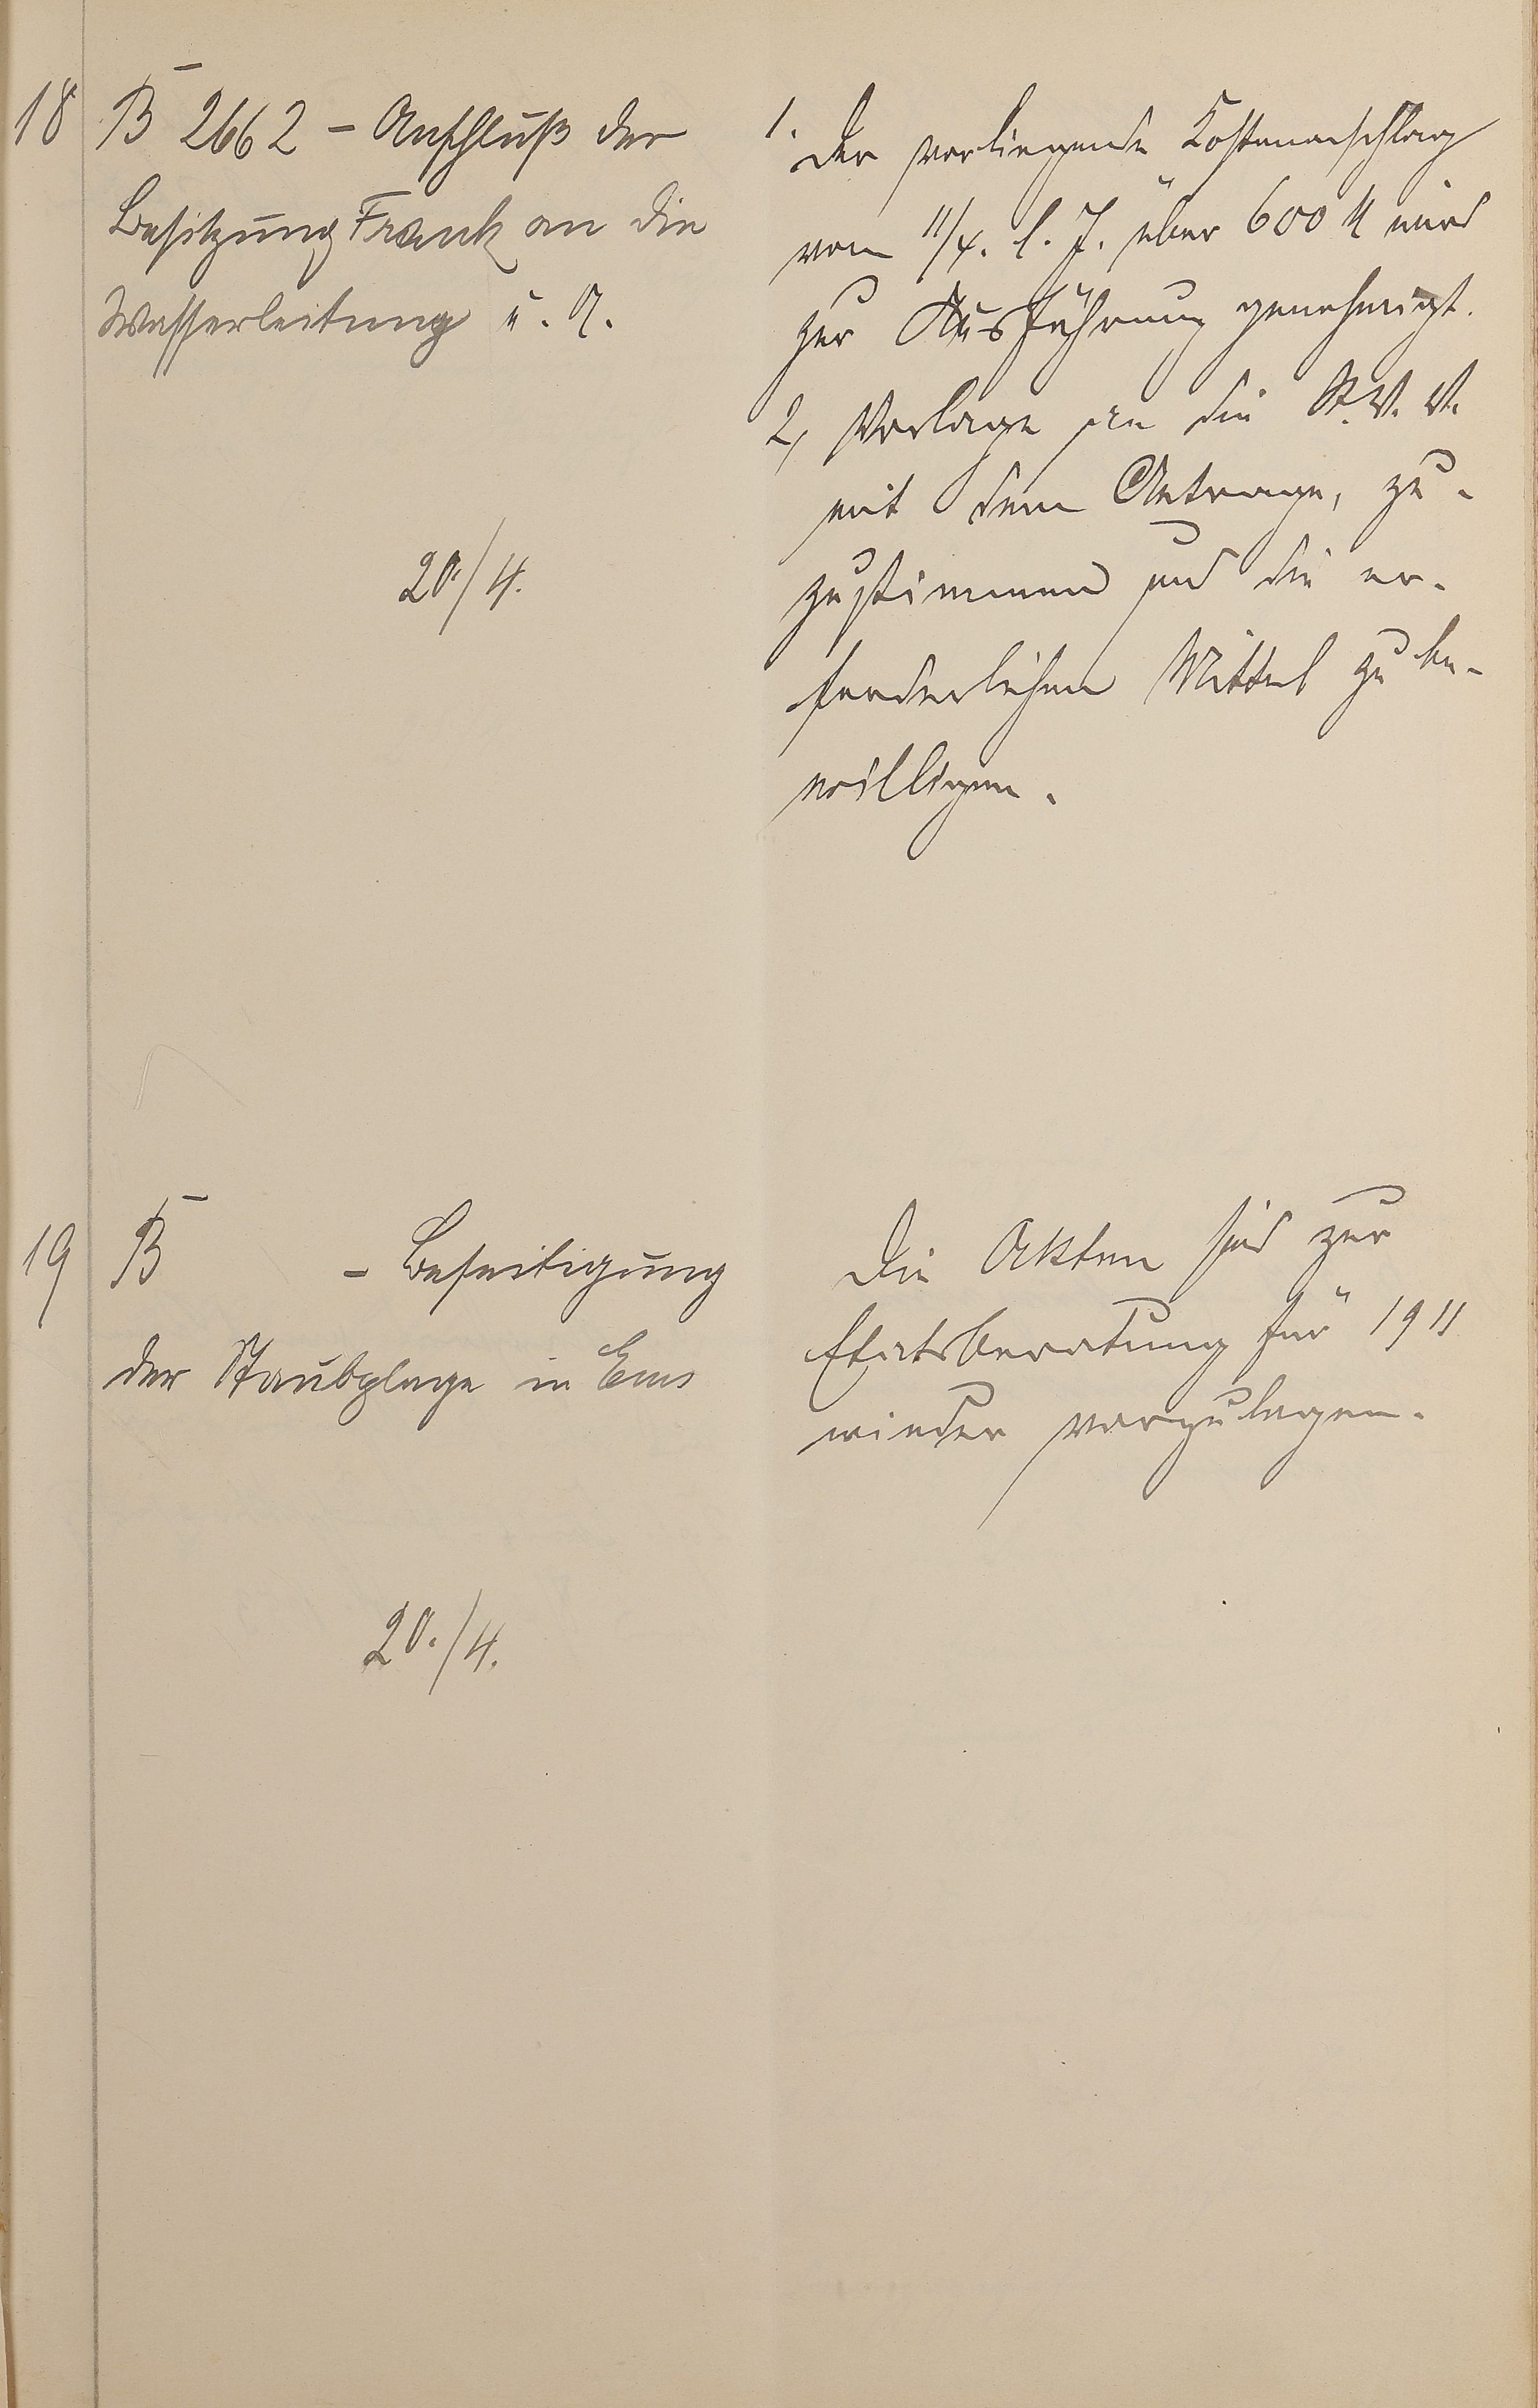 18
B̅ 2662 - Anschluß der
Besitzung Frank an die
Wasserleitung u. A.
20./4.
1. Der vorliegende Kostenanschlag
vom 11/4. l. J. über 600 M wird
zur Ausführung genehmigt.
2, Vorlage an die St. V. V.
mit dem Antrage, zu-
zustimmen und die er-
forderlichen Mittel zu be-
willigen.
19
B̅ - Beseitigung
der Staubplage in Ems
20./4.
Die Akten sind zur
Etatsberatung für 1911
wieder vorzulegen.